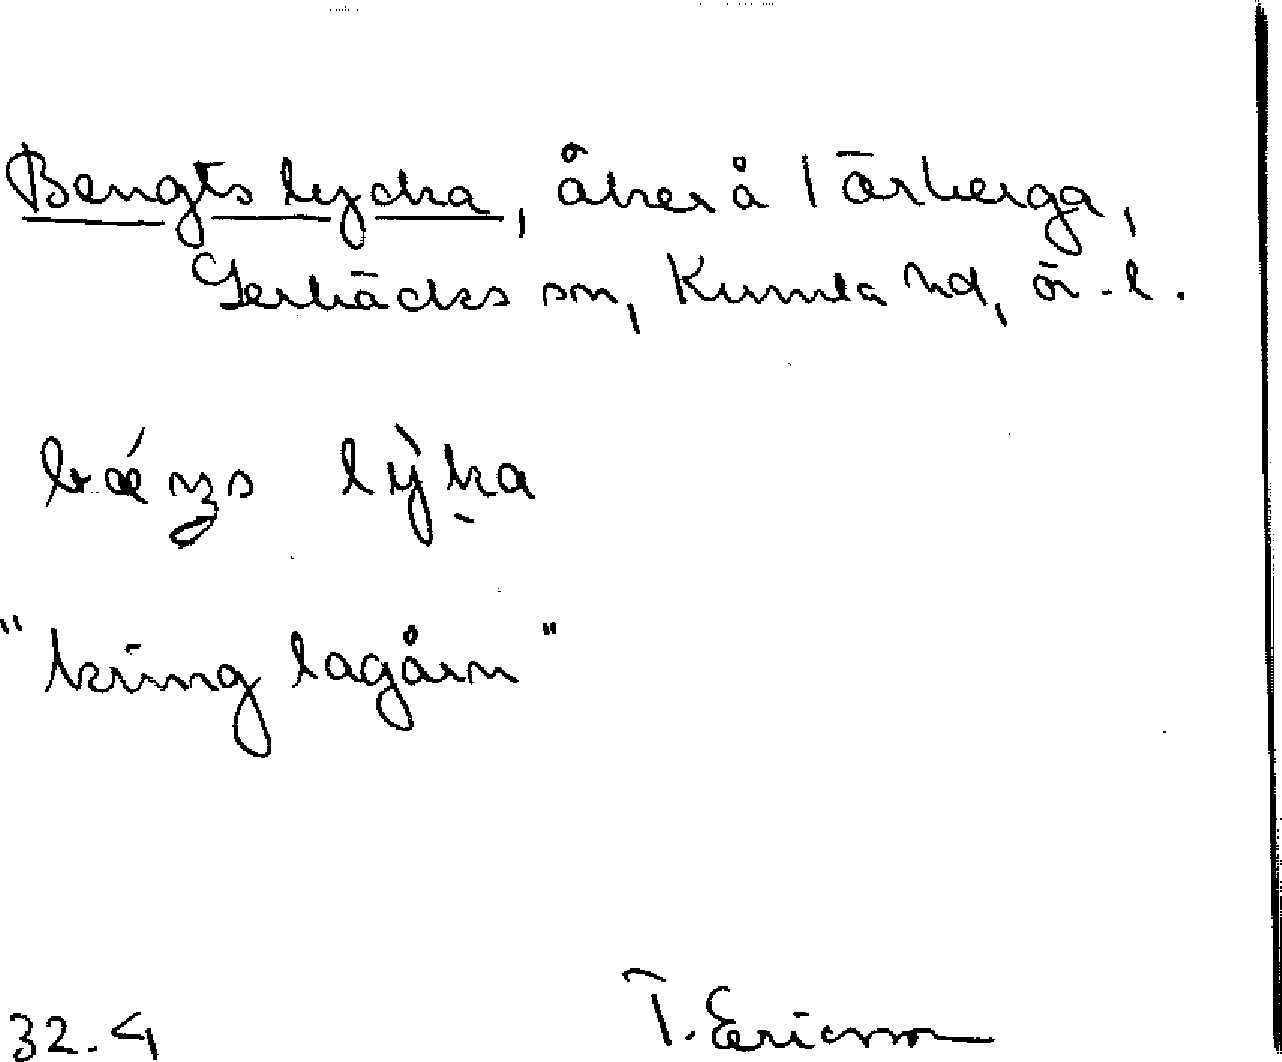 Bengts lycka, åker å Törberga,
Lerbäcks sn, Kumla hd, Ör. l.
lýka
"kring lagårn"
32.4 T. Ericsson